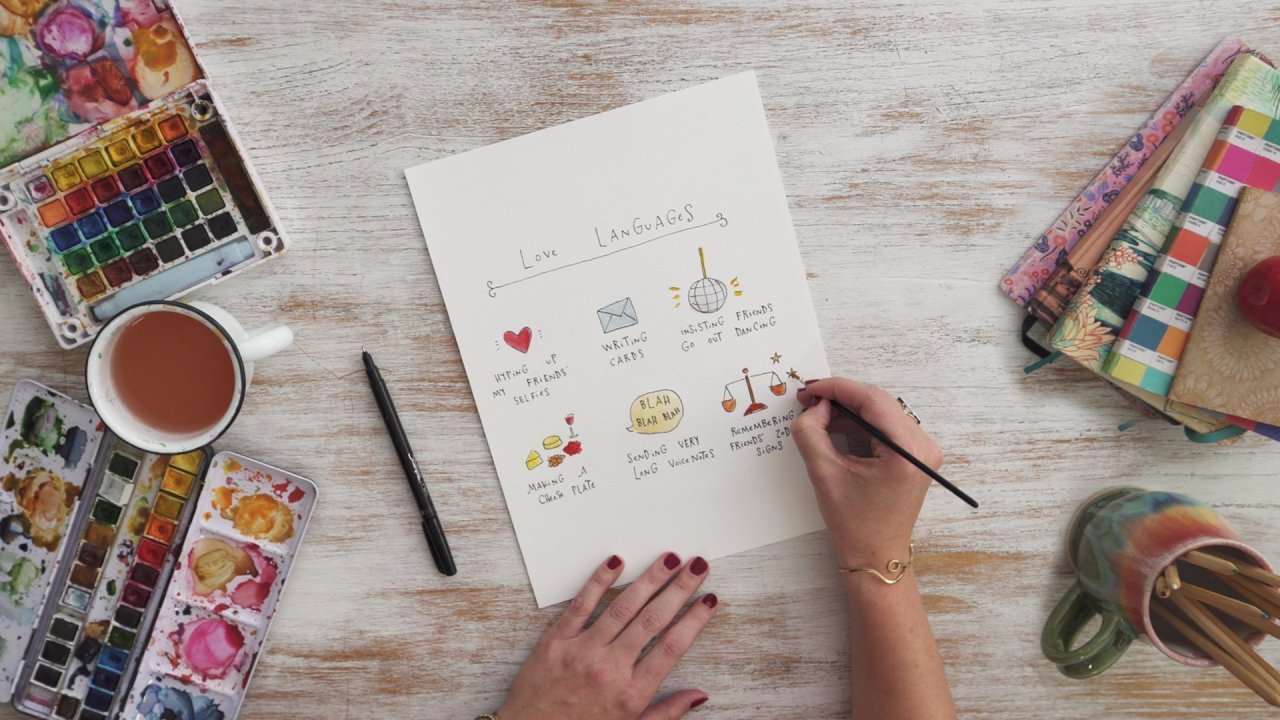 Love LANGUAGES
HYPING UP
MY FRIENDS'
SELFIES
WRITING
CARDS
INSISTING FRIENDS
GO OUT DANCING
MAKING A
CHEESE PLATE
BLAH
BLAH BLAH
SENDING VERY
LONG VOICENOTES
REMEMBERING
FRIENDS'
SIGNS